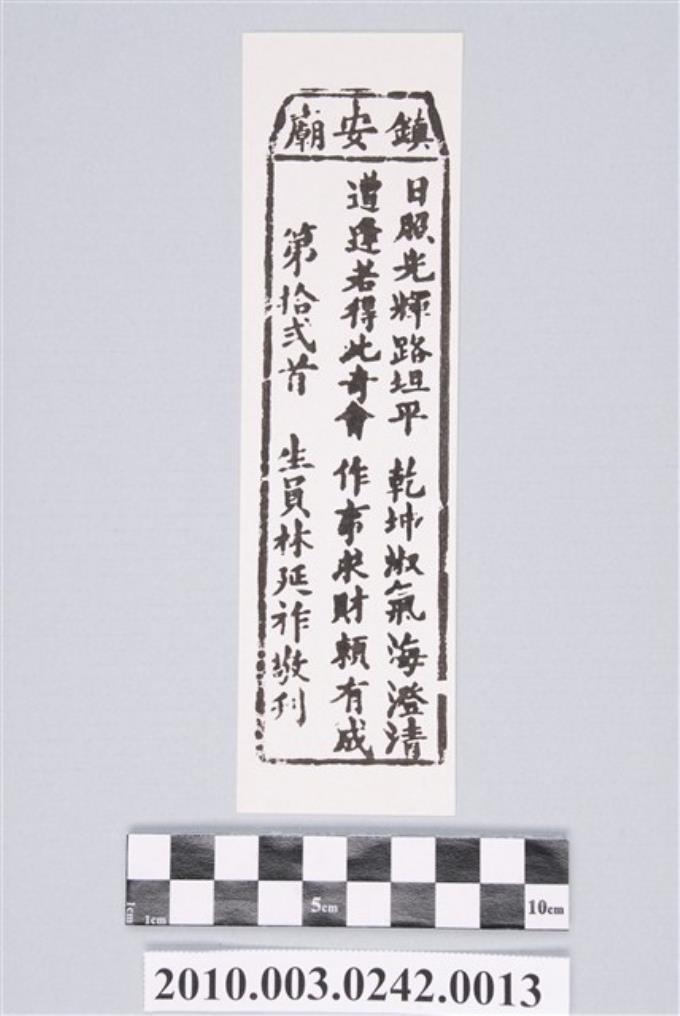 鎮安廟
日照光輝路坦平 乾坤淑氣海澄清
遭逢若得此奇會 作事求財頼有成
第拾弍首 生員林延祚敬刋
1cm 1cm 5cm 10cm
2010.003.0242.0013